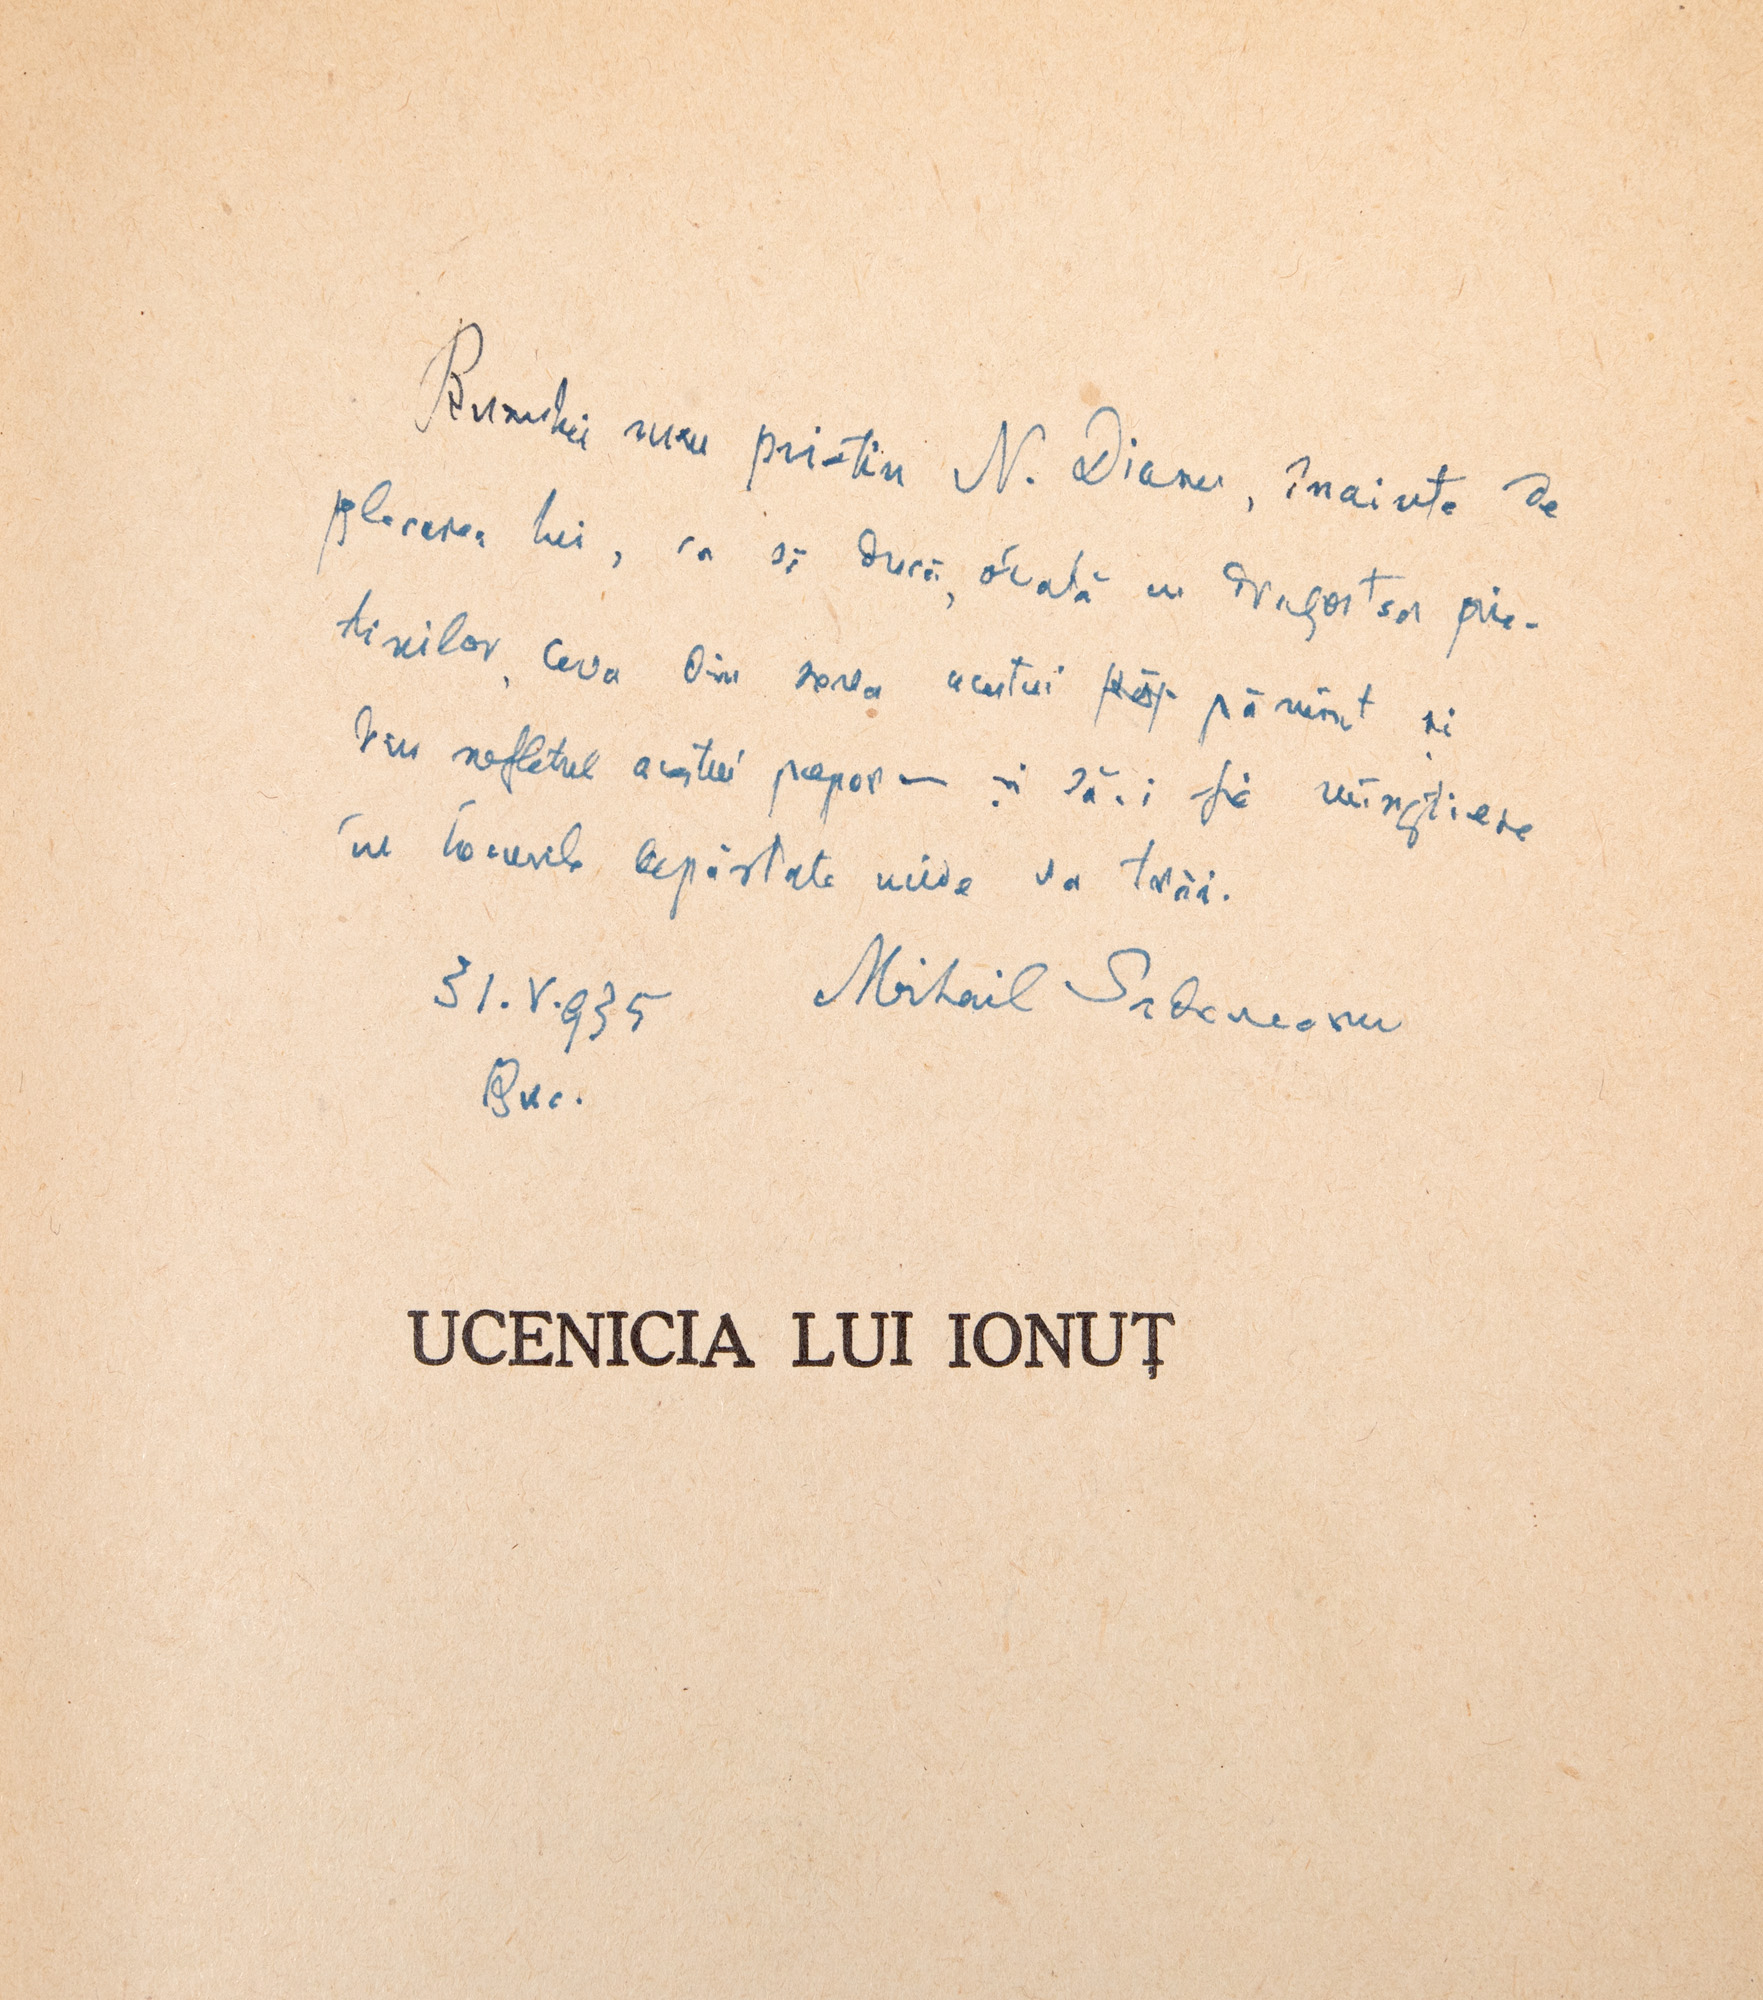 Bunului meu prietin N. Dianu, înainte de
plecarea lui, ca să ducă, odată cu dragostea prie-
tinilor, ceva din seva acestui pămînt și
din sufletul acestui popor — și să-i fie mîngîiere
în locurile depărtate unde va trăi.
31.V.935 Mihail Sadoveanu
Buc.
UCENICIA LUI IONUȚ